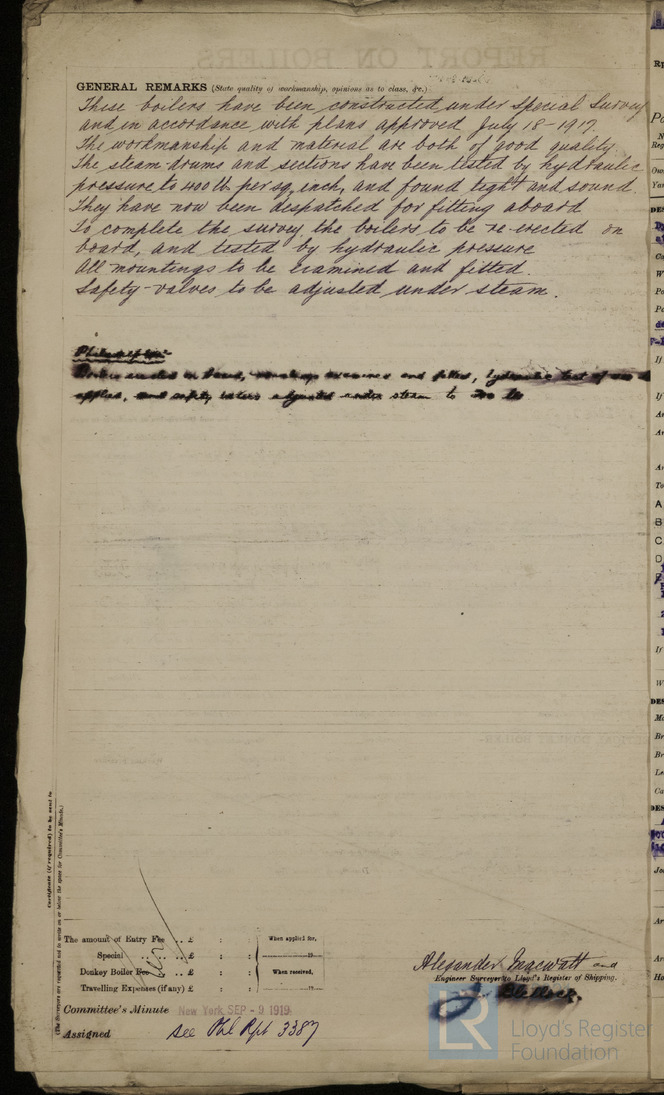 GENERAL REMARKS (State quality of workmanship, opinions as to class, &c.)
These boilers have been constructed under Special Survey
and in accordance with plans approved July 18-1917
The workmanship and material are both of good quality.
The steam drums and sections have been tested by hydraulic
pressure to 400 lb. per sq. inch, and found tight and sound.
They have now been despatched for fitting aboard
To complete the survey the boilers to be re-erected on
board, and tested by hydraulic pressure
All mountings to be examined and fitted.
Safety-valves to be adjusted under steam.
Philadelphia
Boilers erected on board, mountings examined and fitted, hydraulic test of
applied, and safety valves adjusted under steam to
Certificate (if required) to be sent to
(The Surveyors are requested not to write on or below the space for Committee's Minute.)
The amount of Entry Fee .. £ : : When applied for,
Special .. £ : : 19
Donkey Boiler Fee .. £ : : When received,
Travelling Expenses (if any) £ : : 19
Alexander Macwatt and
Engineer Surveyor to Lloyd's Register of Shipping.
Committee's Minute New York SEP - 9 1919
Assigned see Phl Rpt 3387
LR Lloyd's Register
Foundation